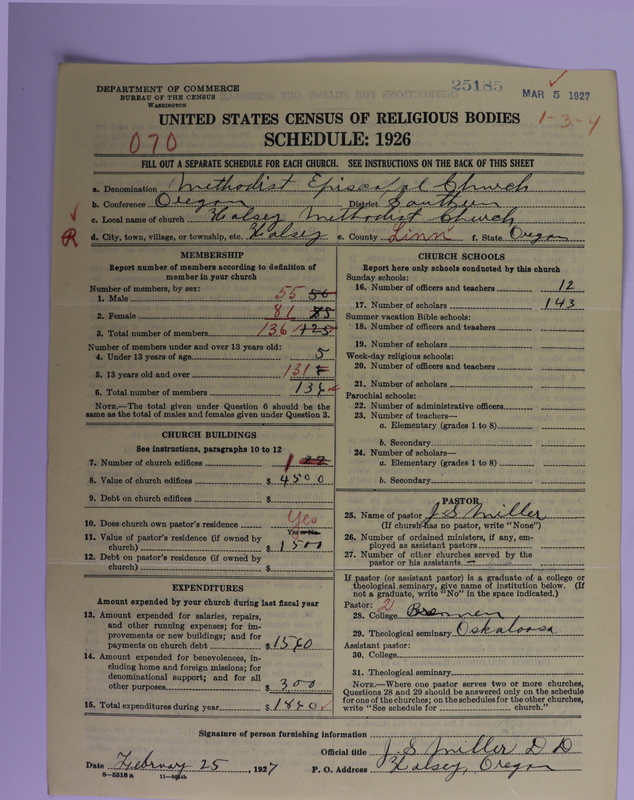 DEPARTMENT OF COMMERCE
BUREAU OF THE CENSUS
WASHINGTON
25185
MAR 5 1927
UNITED STATES CENSUS OF RELIGIOUS BODIES
1-3-4
070
SCHEDULE: 1926
FILL OUT A SEPARATE SCHEDULE FOR EACH CHURCH. SEE INSTRUCTIONS ON THE BACK OF THIS SHEET
a. Denomination Methodist Episcopal Church
b. Conference Oregon District Southern
c. Local name of church Halsey Methodist Church
R d. City, town, village, or township, etc. Halsey e. County Linn f. State Oregon
MEMBERSHIP
Report number of members according to definition of
member in your church
Number of members, by sex:
1. Male 55 56
2. Female 81 85
3. Total number of members 136 125
Number of members under and over 13 years old:
4. Under 13 years of age 5
5. 13 years old and over 131
6. Total number of members 136
NOTE.—The total given under Question 6 should be
same as the total of males and females given under Question 3.
CHURCH BUILDINGS
See instructions, paragraphs 10 to 12
7. Number of church edifices 1
8. Value of church edifices $ 4500
9. Debt on church edifices $
10. Does church own pastor's residence Yes
Yes or No
11. Value of pastor's residence (if owned by
church) $ 1500
12. Debt on pastor's residence (if owned by
church) $
EXPENDITURES
Amount expended by your church during last fiscal year
13. Amount expended for salaries, repairs,
and other running expenses; for im-
provements or new buildings; and for
payments on church debt $ 1560
14. Amount expended for benevolences, in-
cluding home and foreign missions; for
denominational support; and for all
other purposes $ 300
15. Total expenditures during year $ 1860
CHURCH SCHOOLS
Report here only schools conducted by this church
Sunday schools:
16. Number of officers and teachers 12
17. Number of scholars 143
Summer vacation Bible schools:
18. Number of officers and teachers
19. Number of scholars
Week-day religious schools:
20. Number of officers and teachers
21. Number of scholars
Parochial schools:
22. Number of administrative officers
23. Number of teachers—
a. Elementary (grades 1 to 8)
b. Secondary
24. Number of scholars—
a. Elementary (grades 1 to 8)
b. Secondary
PASTOR
25. Name of pastor J S Miller
(If church has no pastor, write "None")
26. Number of ordained ministers, if any, em-
ployed as assistant pastors
27. Number of other churches served by the
pastor or his assistants —
If pastor (or assistant pastor) is a graduate of a college or
theological seminary, give name of institution below. (If
not a graduate, write "No" in the space indicated.)
Pastor: 2
28. College
29. Theological seminary Oskaloosa
Assistant pastor:
30. College
31. Theological seminary
NOTE.—Where one pastor serves two or more churches,
Questions 28 and 29 should be answered only on the schedule
for one of the churches; on the schedules for the other churches,
write "See schedule for church."
Signature of person furnishing information
Official title J. S. Miller D D
Date February 25, 1927 P. O. Address Halsey, Oregon
8—5518 a